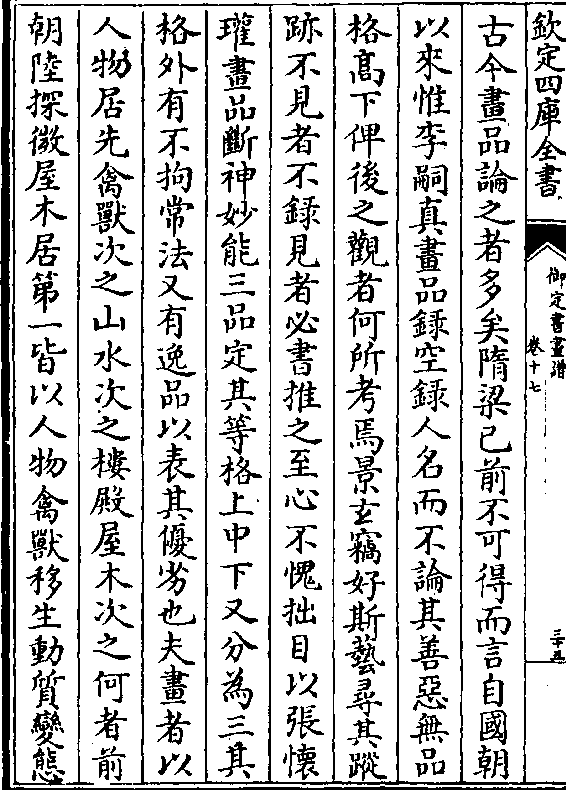 欽定四庫全書
御定書畫譜
卷十七
古今畫品論之者多矣隋梁已前不可得而言自國朝
以來惟李嗣真畫品錄空錄人名而不論其善惡無品
格高下俾後之觀者何所考焉景玄竊好斯藝尋其蹤
跡不見者不錄見者必書推之至心不愧拙目以張懷
瓘畫品斷神妙能三品定其等格上中下又分為三其
格外有不拘常法又有逸品以表其優劣也夫畫者以
人物居先禽獸次之山水次之樓殿屋木次之何者前
朝陸探微屋木居第一皆以人物禽獸移生動質變態